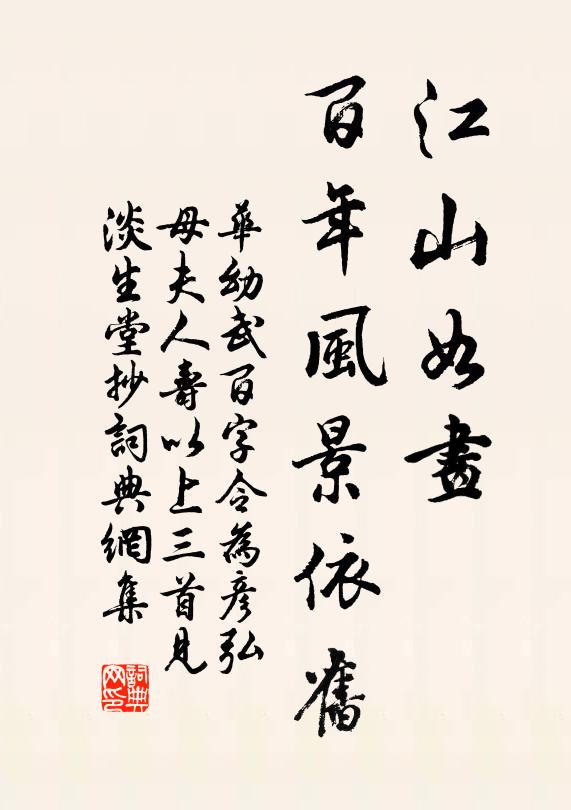 江山如畫
百年風景依舊
華幼武百字令為彥弘
母夫人壽以上三首見
淡生堂抄詞典網集
詞典
网印